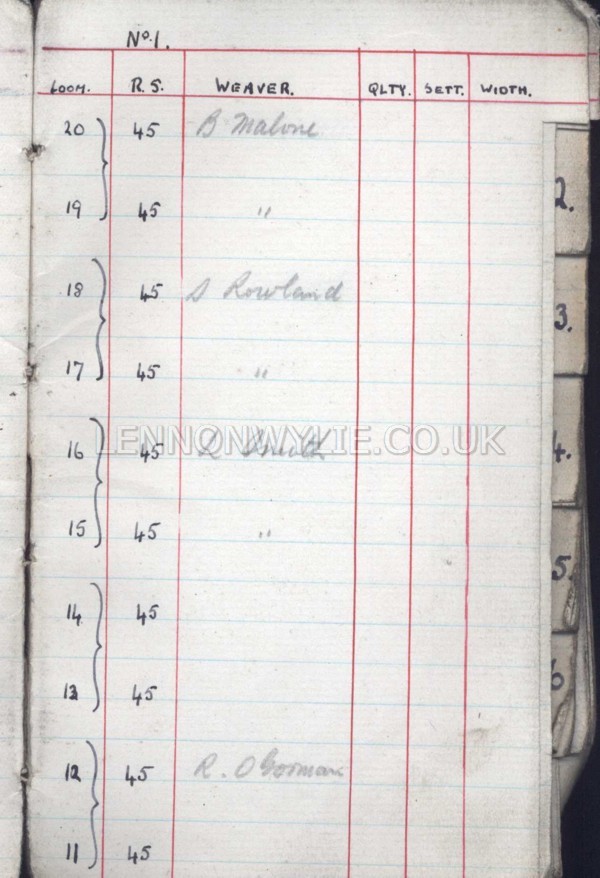 No. 1.
LOOM. R. S. WEAVER. QLTY. SETT. WIDTH.
20 45 B Malone
19 45 "
18 45 S Rowland
17 45 "
LENNONWYLIE.CO.UK
16 45 Smith
15 45 "
14 45
13 45
12 45 R. O Gorman
11 45
2.
3.
4.
5.
6